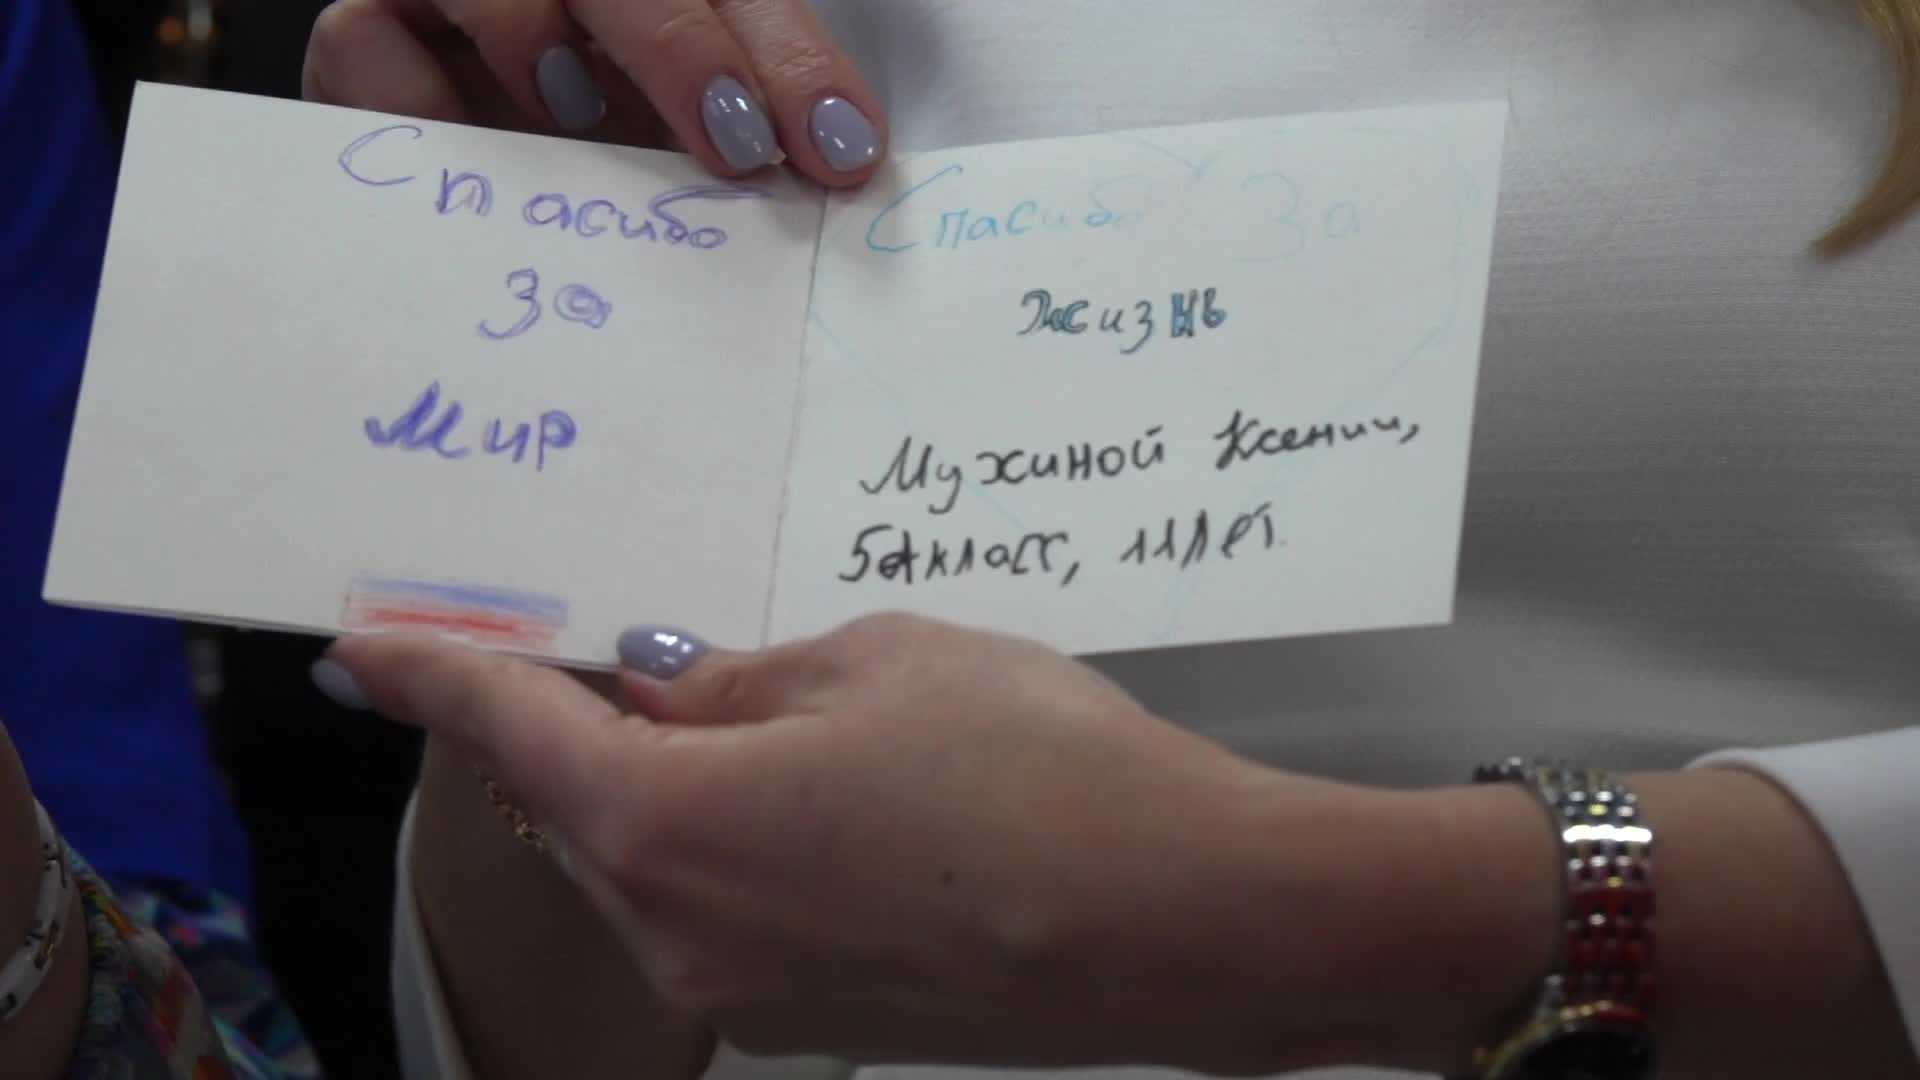 Спасибо
за
Мир
Спасибо за
жизнь
Мухиной Ксении,
5А класс, 11 лет.